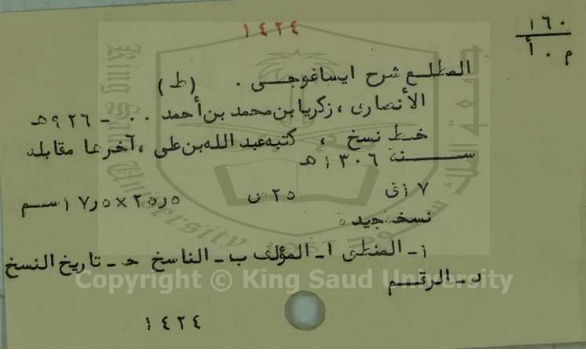 ١٤٢٤
١٦٠
م . أ
المطلع شرح ايساغوجى . (ط)
الأنصارى ، زكريا بن محمد بن أحمد ٠٠ - ٩٢٦هـ
خط نسخ ، كتبه عبد الله بن على ، آخرها مقابله
سنة ١٣٠٦هـ
٧ ق ٢٥ س ٢٥٫٥×١٧٫٥ سم
نسخه جيدة
أ - المنطق ا - المؤلف ب - الناسخ حـ - تاريخ النسخ
د - الرقم
Copyright © King Saud University
١٤٢٤
King Saud University